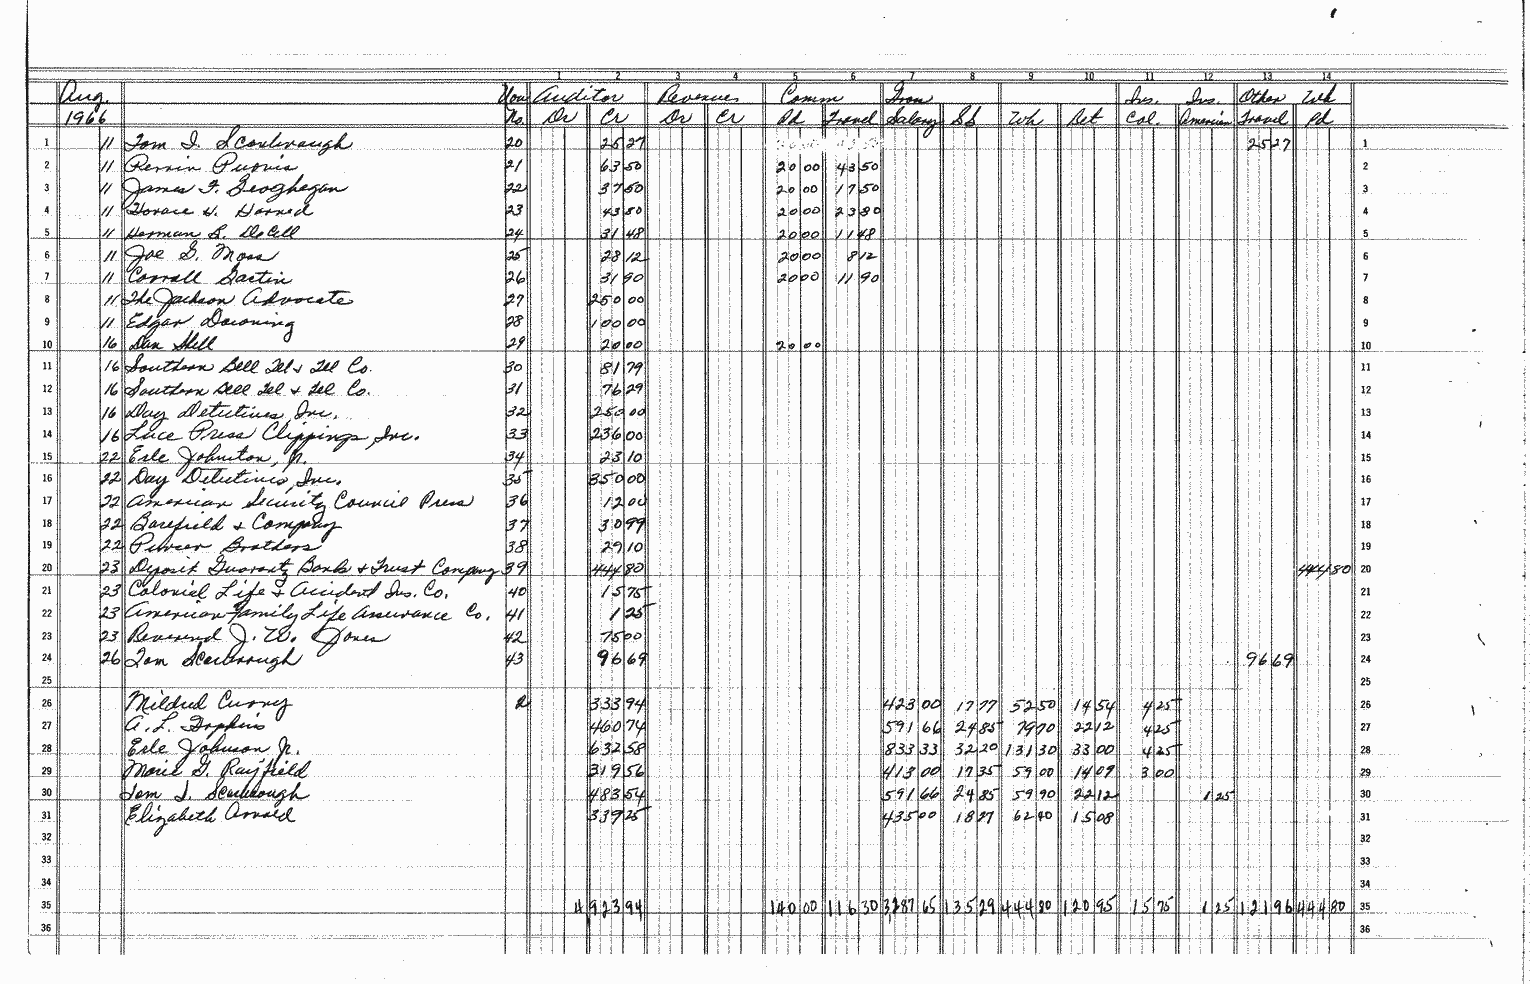 1 2 3 4 5 6 7 8 9 10 11 12 13 14
Aug. Vou Auditor Revenues Comm Gross Ins. Ins. Other Wh
1966 No. Dr Cr Dr Cr Pd Travel Salary SS Wh Ret Col. American Travel Pd
1 11 Tom I. Scarbrough 20 25 27 25 27 1
2 11 Purvis 21 63 50 20 00 43 50 2
3 11 James F. Geoghegan 22 37 50 20 00 17 50 3
4 11 Horace H. Harned 23 43 80 20 00 23 80 4
5 11 Herman B. DeCell 24 31 48 20 00 11 48 5
6 11 Joe G. Moss 25 28 12 20 00 8 12 6
7 11 Carroll Gartin 26 31 90 20 00 11 90 7
8 11 The Jackson Advocate 27 250 00 8
9 11 Edgar Downing 28 100 00 9
10 16 Dan Shell 29 20 00 20 00 10
11 16 Southern Bell Tel & Tel Co. 30 81 79 11
12 16 Southern Bell Tel & Tel Co. 31 76 29 12
13 16 Day Detectives, Inc. 32 250 00 13
14 16 Luce Press Clippings, Inc. 33 236 00 14
15 22 Erle Johnston, Jr. 34 23 10 15
16 22 Day Detectives, Inc. 35 350 00 16
17 22 American Security Council Press 36 12 00 17
18 22 Barefield & Company 37 30 99 18
19 22 Purser Brothers 38 29 10 19
20 23 Deposit Guaranty Bank & Trust Company 39 444 80 444 80 20
21 23 Colonial Life & Accident Ins. Co. 40 15 75 21
22 23 American Family Life Assurance Co. 41 1 25 22
23 23 Reverend J. W. Jones 42 75 00 23
24 26 Tom Scarbrough 43 96 69 96 69 24
25 25
26 Mildred Curry 333 94 423 00 17 77 52 50 14 54 4 25 26
27 A. L. Hopkins 460 74 591 66 24 85 79 70 22 12 4 25 27
28 Erle Johnson Jr. 632 58 833 33 32 20 131 30 33 00 4 25 28
29 Marie G. Rayfield 319 56 413 00 17 35 59 00 14 09 3 00 29
30 Tom I. Scarbrough 483 54 591 66 24 85 59 90 22 12 1 25 30
31 Elizabeth Arnold 339 25 435 00 18 27 62 40 15 08 31
32 32
33 33
34 34
35 4 923 94 140 00 116 30 3287 65 135 29 444 80 120 95 15 75 1 25 121 96 444 80 35
36 36